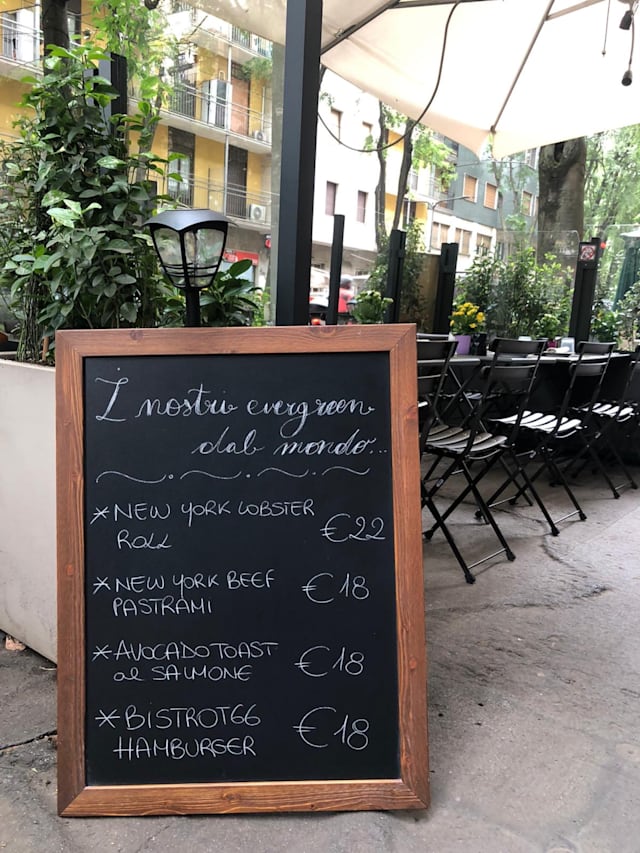 I nostri evergreen
dal mondo...
*NEW YORK LOBSTER €22
ROLL
*NEW YORK BEEF €18
PASTRAMI
*AVOCADO TOAST €18
al SALMONE
*BISTROT66 €18
HAMBURGER